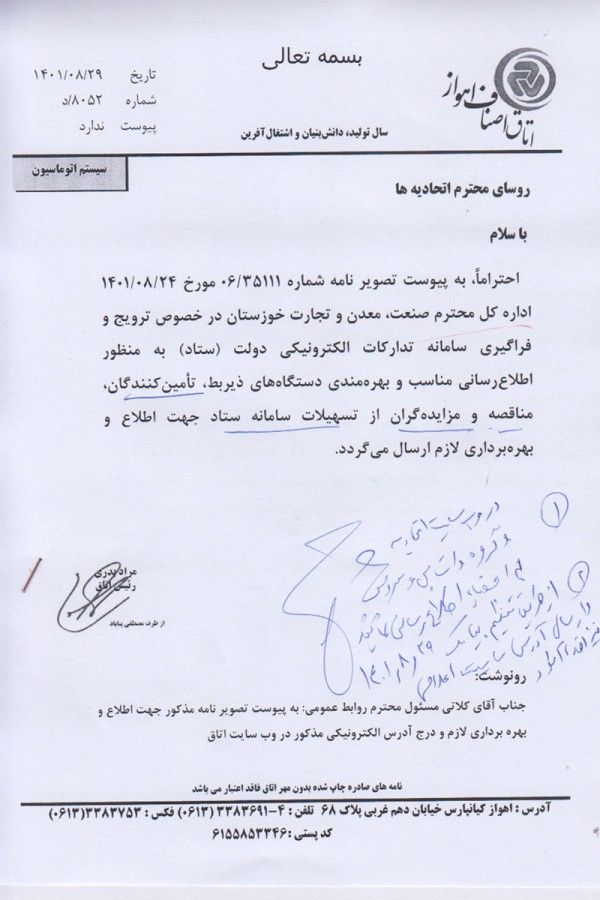 بسمه تعالی
اتاق اصناف اهواز
تاریخ ۱۴۰۱/۰۸/۲۹
شماره ۸۰۵۲/د
پیوست ندارد
سال تولید، دانش‌بنیان و اشتغال‌آفرین
سیستم اتوماسیون
روسای محترم اتحادیه ها
با سلام
احتراماً، به پیوست تصویر نامه شماره ۰۶/۳۵۱۱۱ مورخ ۱۴۰۱/۰۸/۲۴
اداره کل محترم صنعت، معدن و تجارت خوزستان در خصوص ترویج و
فراگیری سامانه تدارکات الکترونیکی دولت (ستاد) به منظور
اطلاع‌رسانی مناسب و بهره‌مندی دستگاه‌های ذیربط، تأمین‌کنندگان،
مناقصه و مزایده‌گران از تسهیلات سامانه ستاد جهت اطلاع و
بهره‌برداری لازم ارسال می‌گردد.
۱ در وب سایت اتحادیه
و گروه واتس
اطلاع رسانی
۲ از طریق
و ارسال آدرس سایت
۱۴۰۱/۸/۲۹
مراد بدری
رئیس اتاق
از طرف مصطفی بناباد
رونوشت:
جناب آقای کلاتی مسئول محترم روابط عمومی: به پیوست تصویر نامه مذکور جهت اطلاع و
بهره برداری لازم و درج آدرس الکترونیکی مذکور در وب سایت اتاق
نامه های صادره چاپ شده بدون مهر اتاق فاقد اعتبار می باشد
آدرس : اهواز کیانپارس خیابان دهم غربی پلاک ۶۸ تلفن : ۴-۳۳۸۳۶۹۱ (۰۶۱۳) فکس : ۳۳۸۳۷۵۳(۰۶۱۳)
کد پستی :۶۱۵۵۸۵۳۳۴۶